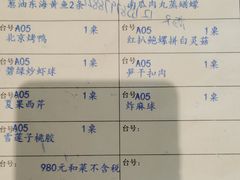 葱油东海黄鱼2条
南瓜肉丸蒸蟠螺
台号:A05 1桌
北京烤鸭
台号A05 1桌
红扒鲍螺拼白灵菇
台号A05 1桌
碧绿炒虾球
台号A05 1桌
笋干扣肉
台号A05 1桌
夏果西芹
台号A05 1桌
炸麻球
台号A05 1桌
雪莲子桃胶
台号:
台号:
980元和菜不含税
台号: